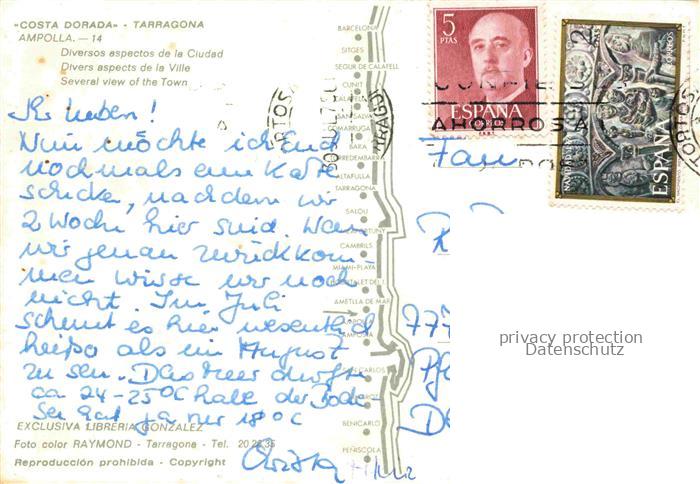 «COSTA DORADA» - TARRAGONA
AMPOLLA. — 14
Diversos aspectos de la Ciudad
Divers aspects de la Ville
Several view of the Town
Ihr Lieben!
Nun möchte ich Euch
nochmals eine Karte
schicke, nachdem wir
2 Woche hier sind. Wan
wir genau zurückkom-
men wisse wir noch
nicht. Im Juli
scheint es hier wesentlich
heißer als im August
zu sein. Das Meer dürfte
ca 24-25°C habe der Bode-
See hat ja nur 18°C
EXCLUSIVA LIBRERIA GONZALEZ
Foto color RAYMOND - Tarragona - Tel. 20 28 35
Reproducción prohibida - Copyright
BARCELONA
SITGES
SEGUR DE CALAFELL
CUNIT
TARRAGONA
SALOU
CAMBRILS
MIAMI-PLAYA
AMETLLA DE MAR
BENICARLO
PEÑISCOLA
5
PTAS
ESPAÑA
CORREOS
2
PTAS
CORREOS
ESPAÑA
NAVIDAD
AHORROS A
Fam
777
privacy protection
Datenschutz